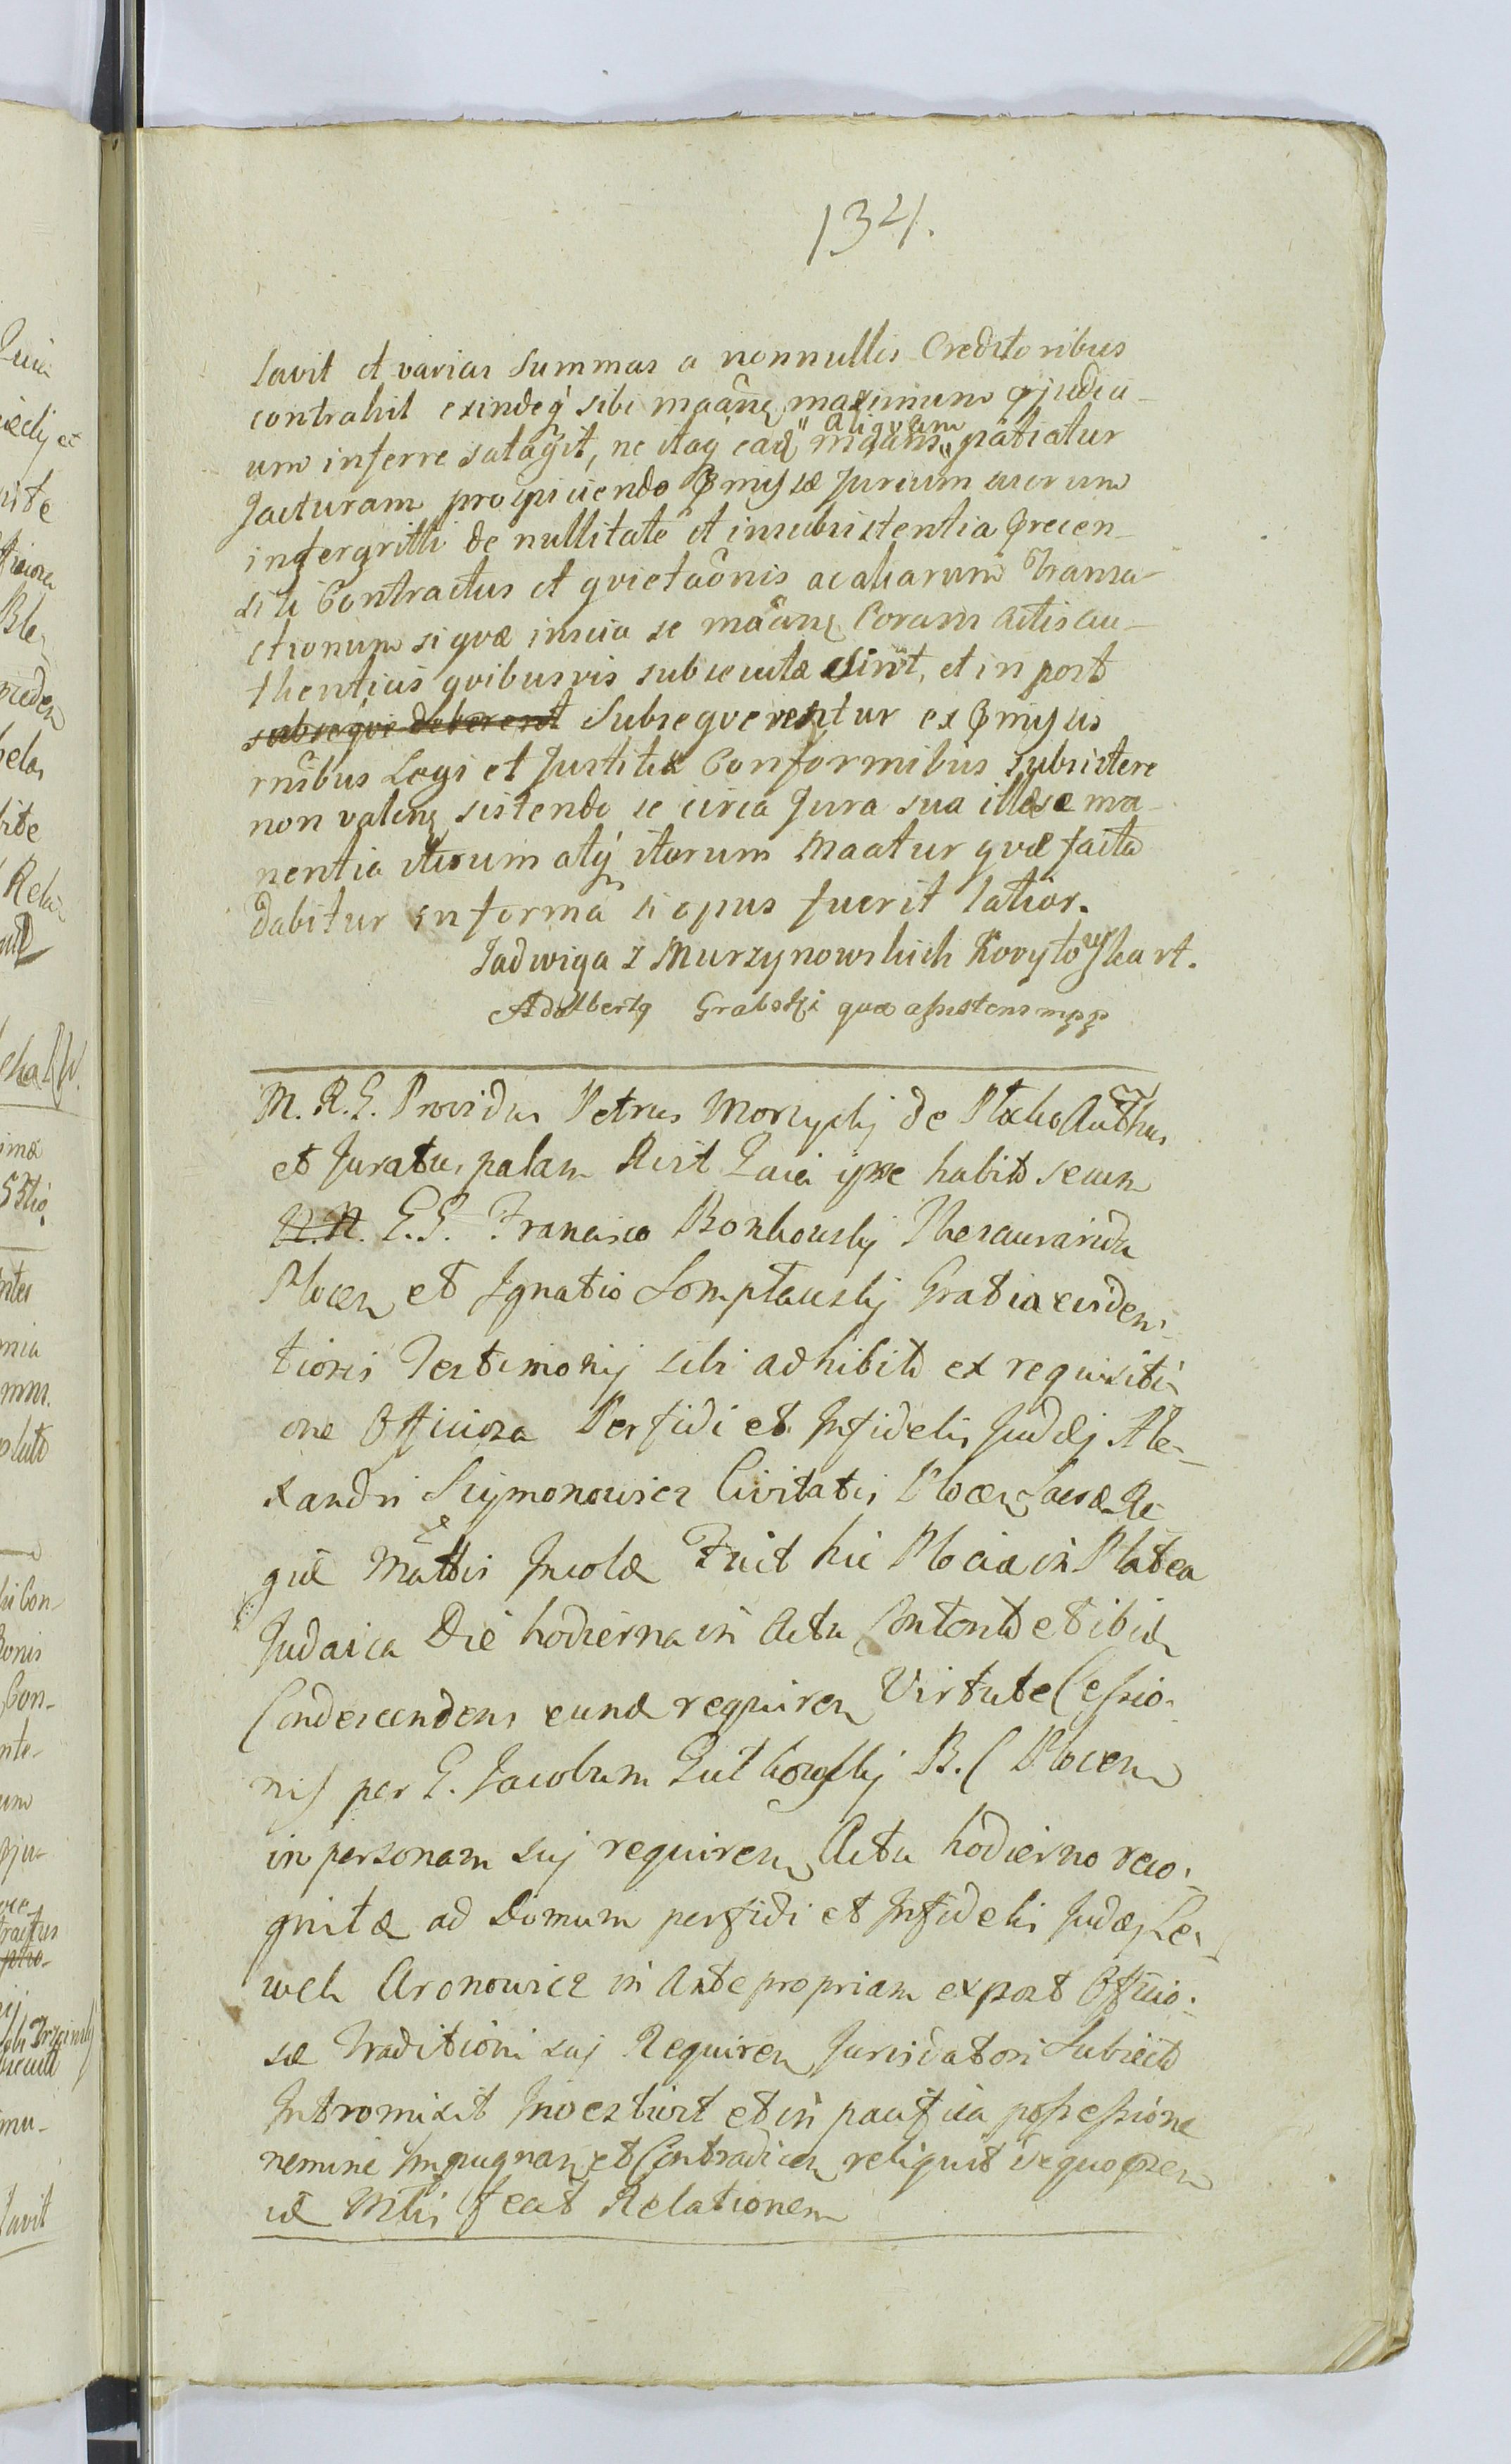 134.
savit et varias Summas a nonnullis Creditoribus
contrahit exindeq sibi maãnę maximum pjudici-
um inferre satagit, ne itaq ead maãns aliquam patiatur
Jacturam prospiciendo pmissæ Jurium suorum
intergritti de nullitate et insubsistentia precen-
siti Contractus et qvietaõnis ac aliarum Transa-
ctionum si qvæ inscia se maãnę Coram Actis au-
thenticis qvibusvis subsecutæ sint, et in post
subseqvi deberent Subseqverentur ex pmissis
rnibus Legi et Justitiæ Conformibus subsistere
non valenę sistendo se circa Jura sua illæsa ma-
nentia iterum atq iterum Maatur qvæ facta
dabitur in forma si opus fuerit latior.
Jadwiga z Murzynowskich Kovytowska rt.
Adalbertq Grabski qua assistens mpp
M. R. G. Providus Petrus Morzycki de Authus
et Juratus palam Rist Quia ipse habito secum
N.N. G.G. Francisco Bonkowskj Thesauraridæ
Plocen et Ignatio Lomptauskj Gratia eviden-
tioris Testimonij sibi adhibito ex requisiti-
one Officiosa Perfidi et Infidelis Judæj Ale-
xandri Szymonowicz Civitatis Plocen Sacræ Re
giæ Mattis Incolæ Fuit hic Plociæ in Platea
Judaica Die hodierna in Actu Contento et ibid
Condescendens eund requiren Virtute Cessio-
nis per G. Jacobum Gutkowskj B. C Plocen
in personam suj requiren Actu hodierno reco-
gnitæ ad Domum perfidi et Infidelis Judæj Le-
wek Aronowicz in Ante propriam ex post Officio-
sæ Traditioni suj Requiren Jurisdatori Subiecto
Intromisit Investivit et in pacifica possessione
nemine Impugnan et Contradicen reliquit de quo præn
id Mtlis fecit Relationem